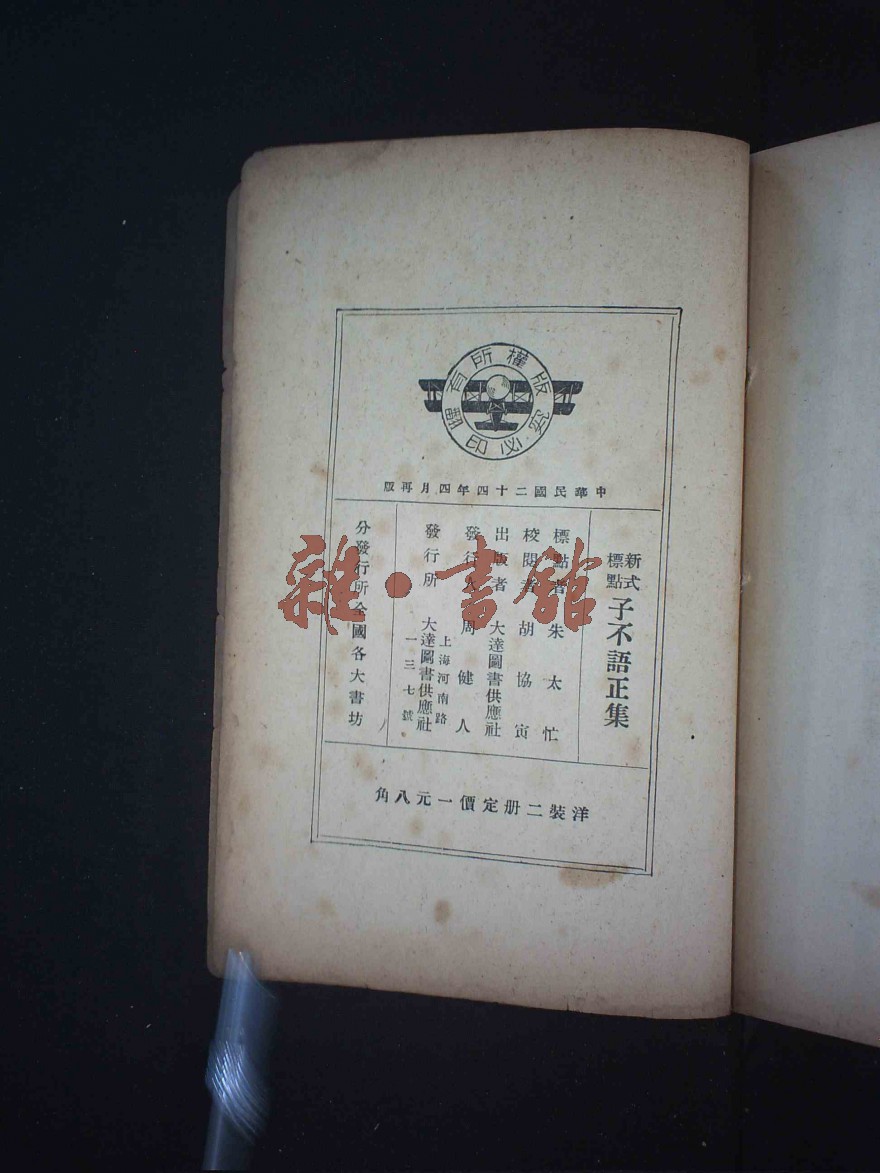 版權所有
翻印必究
中華民國二十四年四月再版
新式標點 子不語正集
標點者 朱太忙
校閱者 胡協寅
出版者 大達圖書供應社
發行人 周健人
發行所 大達圖書供應社
上海河南路
一三七號
分發行所全國各大書坊
洋裝二册定價一元八角
雜·書館